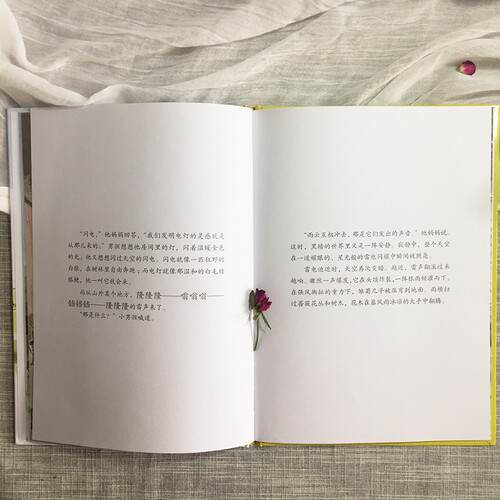 “闪电，”他妈妈回答，“我们发明电灯的灵感就是
从那儿来的。”男孩想想他房间里的灯，闪着温暖金色
的光。他又想想闪过天空的闪电。闪电就像一匹狂野的
白狼，在树林里自由奔跑；而电灯就像那温和的白毛猎
猎梗，他一叫它就会来。
而从山外某个地方，隆隆隆——嗡嗡嗡——
铛铛铛——隆隆隆的雷声来了。
“那是什么？”小男孩喊道。
“雨云互相冲击，那是它们发出的声音。”他妈妈说。
这时，黑暗的世界里又是一阵安静。寂静中，整个天空
在一道耀眼的、星光般的雷电闪碟中瞬间被照亮。
雷电饱近时，天空再次变暗。越近，雷声翻滚过来
越响。骤然一声爆发，它在头顶炸裂，一阵狂雨倾灌而下。
在强风撕扯的重力下，雏菊几乎被压弯到地面。雨横扫
过蔷薇花丛和树木，花木在暴风雨冰凉的大手中翻腾。